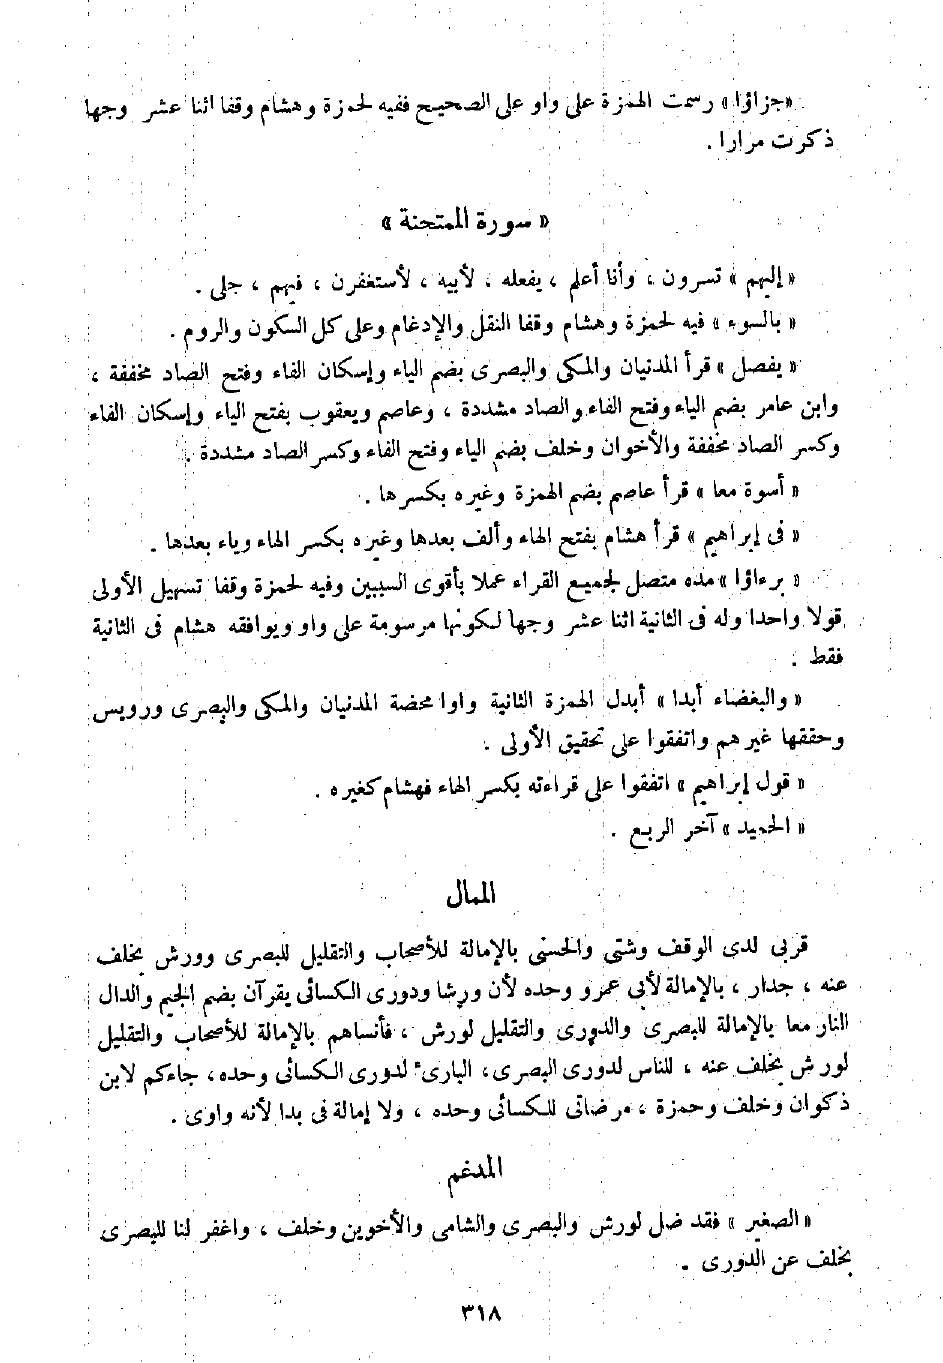 «جزاؤا» رسمت الهمزة على واو على الصحيح ففيه لحمزة وهشام وقفا اثنا عشر وجها
ذكرت مرارا .
« سورة الممتحنة »
« إليهم » تسرون ، وأنا أعلم ، يفعله ، لأبيه ، لأستغفرن ، فيهم ، جلى .
« بالسوء » فيه لحمزة وهشام وقفا النقل والإدغام وعلى كل السكون والروم .
« يفصل » قرأ المدنيان والمكى والبصرى بضم الياء وإسكان الفاء وفتح الصاد مخففة ،
وابن عامر بضم الياء وفتح الفاء والصاد مشددة ، وعاصم ويعقوب بفتح الياء وإسكان الفاء
وكسر الصاد مخففة والأخوان وخلف بضم الياء وفتح الفاء وكسر الصاد مشددة .
« أسوة معا » قرأ عاصم بضم الهمزة وغيره بكسرها .
« فى إبراهيم » قرأ هشام بفتح الهاء وألف بعدها وغيره بكسر الهاء وياء بعدها .
« برءاؤا » مده متصل لجميع القراء عملا بأقوى السببين وفيه لحمزة وقفا تسهيل الأولى
قولا واحدا وله فى الثانية اثنا عشر وجها لكونها مرسومة على واو ويوافقه هشام فى الثانية
فقط .
« والبغضاء أبدا » أبدل الهمزة الثانية واوا محضة المدنيان والمكى والبصرى ورويس
وحققها غيرهم واتفقوا على تحقيق الأولى .
« قول إبراهيم » اتفقوا على قراءته بكسر الهاء فهشام كغيره .
« الحميد » آخر الربع .
الممال
قربى لدى الوقف وشتى والحسنى بالإمالة للأصحاب والتقليل للبصرى وورش بخلف
عنه ، جدار ، بالإمالة لأبى عمرو وحده لأن ورشا ودورى الكسائى يقرآن بضم الجيم والدال
النار معا بالإمالة للبصرى والدورى والتقليل لورش ، فأنساهم بالإمالة للأصحاب والتقليل
لورش بخلف عنه ، للناس لدورى البصرى، البارئ لدورى الكسائى وحده، جاءكم لابن
ذكوان وخلف وحمزة ، مرضاتى للكسائى وحده ، ولا إمالة فى بدا لأنه واوى .
المدغم
« الصغير » فقد ضل لورش والبصرى والشامى والأخوين وخلف ، واغفر لنا للبصرى
بخلف عن الدورى .
٣١٨